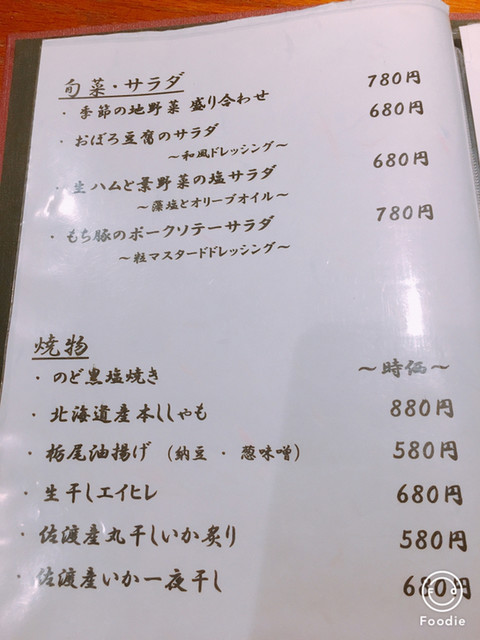 旬菜・サラダ
・季節の地野菜 盛り合わせ 780円
・おぼろ豆腐のサラダ 680円
～和風ドレッシング～
・生ハムと葉野菜の塩サラダ 680円
～藻塩とオリーブオイル～
・もち豚のポークソテーサラダ 780円
～粒マスタードドレッシング～
焼物
・のど黒塩焼き ～時価～
・北海道産本ししゃも 880円
・栃尾油揚げ (納豆・葱味噌) 580円
・生干しエイヒレ 680円
・佐渡産丸干しいか炙り 580円
・佐渡産いか一夜干し 680円
Foodie